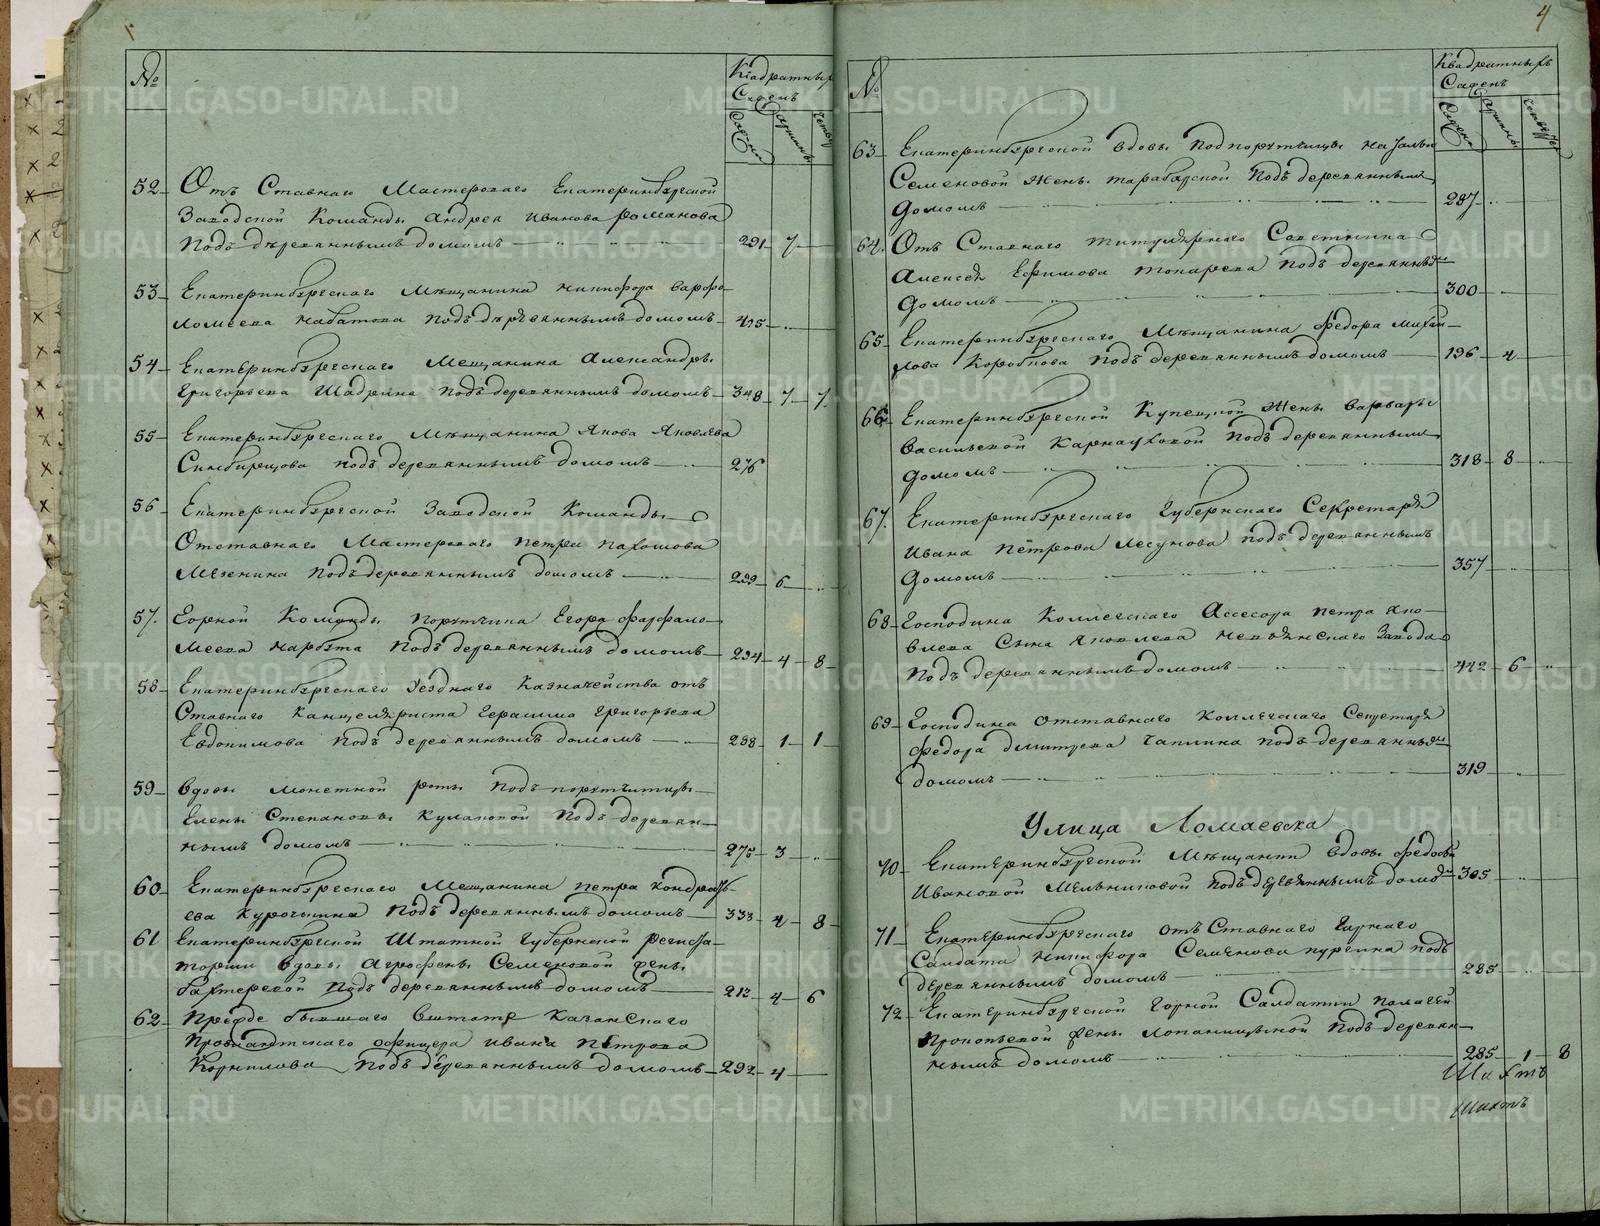 4
№
Квадратныхъ
Саженъ
Сажени
Аршины
четверти
52 Отъ Ставнаго Мастероваго Екатеринбургской
Заводской Команды Андрея Иванова Романова
подъ деревяннымъ домомъ 291 7
53 Екатеринбургскаго Мѣщанина Никифора Варфо-
ломеева Набатова подъ деревяннымъ домомъ 415
54 Екатеринбургскаго Мещанина Александры
Григорьева Шадрина подъ деревяннымъ домомъ 348 7 7
55 Екатеринбургскаго Мѣщанина Якова Яковлева
Симбирцова подъ деревяннымъ домомъ 276
56 Екатеринбургской Заводской Команды
Отставнаго Мастероваго Петра Пахомова
Мезенина подъ деревяннымъ домомъ 299 6
57. Горной Команды Порутчика Егора Фарфало-
меева подъ деревяннымъ домомъ 294 4 8
58 Екатеринбургскаго Уезднаго Казначейства отъ
Ставнаго Канцеляриста Герасима Григорьева
Евдокимова подъ деревяннымъ домомъ 298 1 1
59 Вдовы Монетной роты Подпорутчицы
Елены Степановы Кулаковой подъ деревян-
нымъ домомъ 275 3
60 Екатеринбургскаго Мещанина Петра Кондрать-
ева Курочкина подъ деревяннымъ домомъ 333 4 8
61 Екатеринбургской Штатной Губернской регистра-
торши вдовы Агрофены Семеновой
Бахтеревой подъ деревяннымъ домомъ 212 4 6
62 Прежде бывшаго в штате Казанскаго
Провиантскаго офицера Ивана Петрова
Корнилова подъ деревяннымъ домомъ 292 4
№
Квадратныхъ
Саженъ
Сажени
Аршины
четверти
63 Екатеринбургской вдовы Подпорутчицы Натальи
Семеновой Жены подъ деревяннымъ
домомъ 287
64. Отъ Ставнаго титулярнаго Советника
Алексея Ефимова Токарева подъ деревяннымъ
домомъ 300
65 Екатеринбургскаго Мѣщанина Федора Михай-
лова Коробкова подъ деревяннымъ домомъ 196 4
66 Екатеринбургской Купецкой Жены Варвары
Васильевой Карнауховой подъ деревяннымъ
домомъ 318 8
67. Екатеринбургскаго Губернскаго Секретаря
Ивана Петрова подъ деревяннымъ
домомъ 357
68 Господина Коллегскаго Ассесора Петра Яко-
влева Сына Яковлева Невьянскаго Завода
подъ деревяннымъ домомъ 442 6
69 Господина отставнаго Коллегскаго Секретаря
Федора Дмитрева Чаплина подъ деревяннымъ
домомъ 319
Улица Ломаевска
70 Екатеринбургской Мѣщанки вдовы Федосьи
Ивановой Мельниковой подъ деревяннымъ домомъ 305
71 Екатеринбургскаго отъ Ставнаго Горнаго
Салдата Никифора Семенова подъ
деревяннымъ домомъ 285
72 Екатеринбургской Горной Салдатки Пелагеи
Прокопьевой подъ деревян-
нымъ домомъ 285 1 8
METRIKI.GASO-URAL.RU